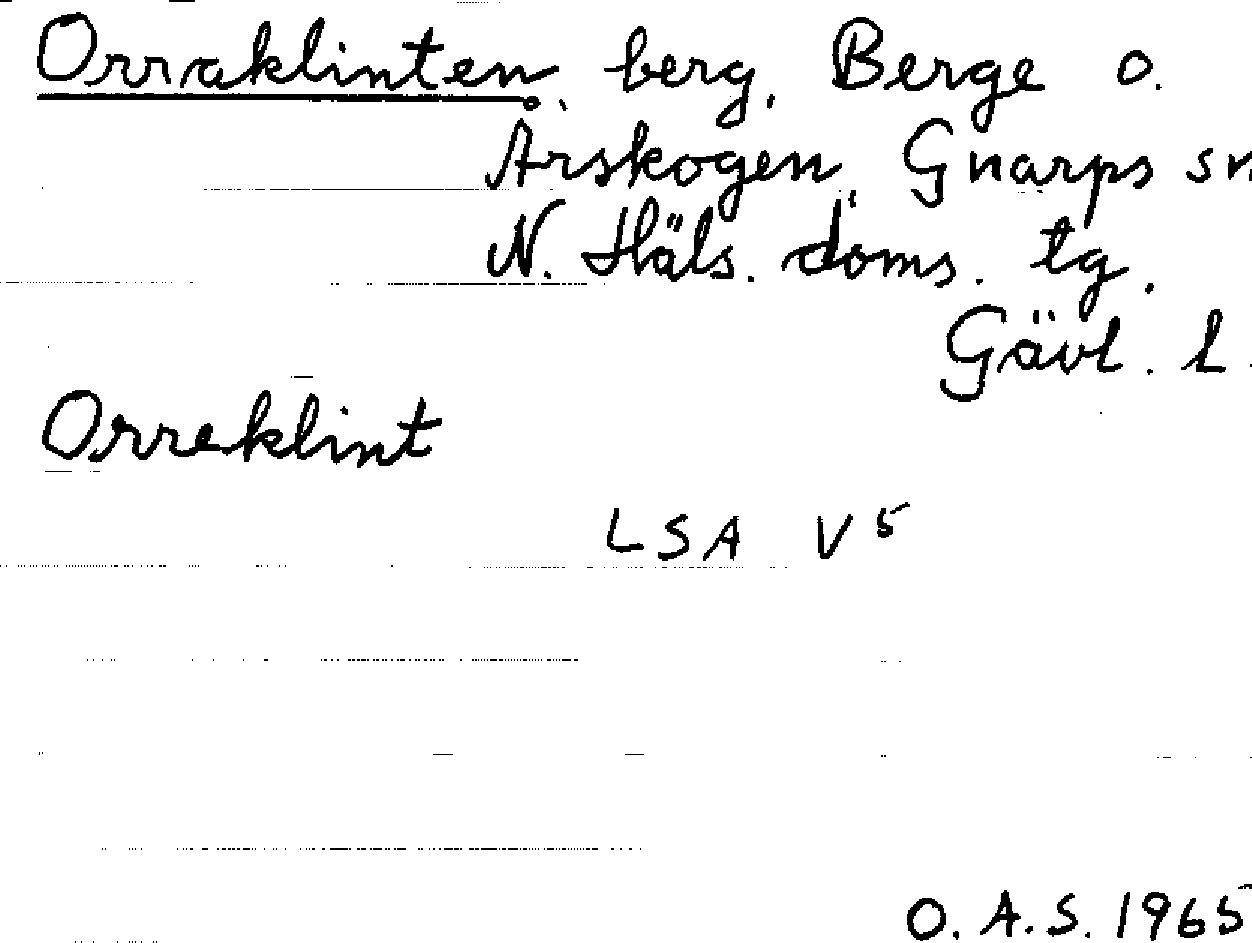 Orraklinten, berg, Berge o.
Årskogen, Gnarps sn
N. Häls. doms. tg.
Gävl. l.
Orreklint
LSA V5
O. A. S. 1965